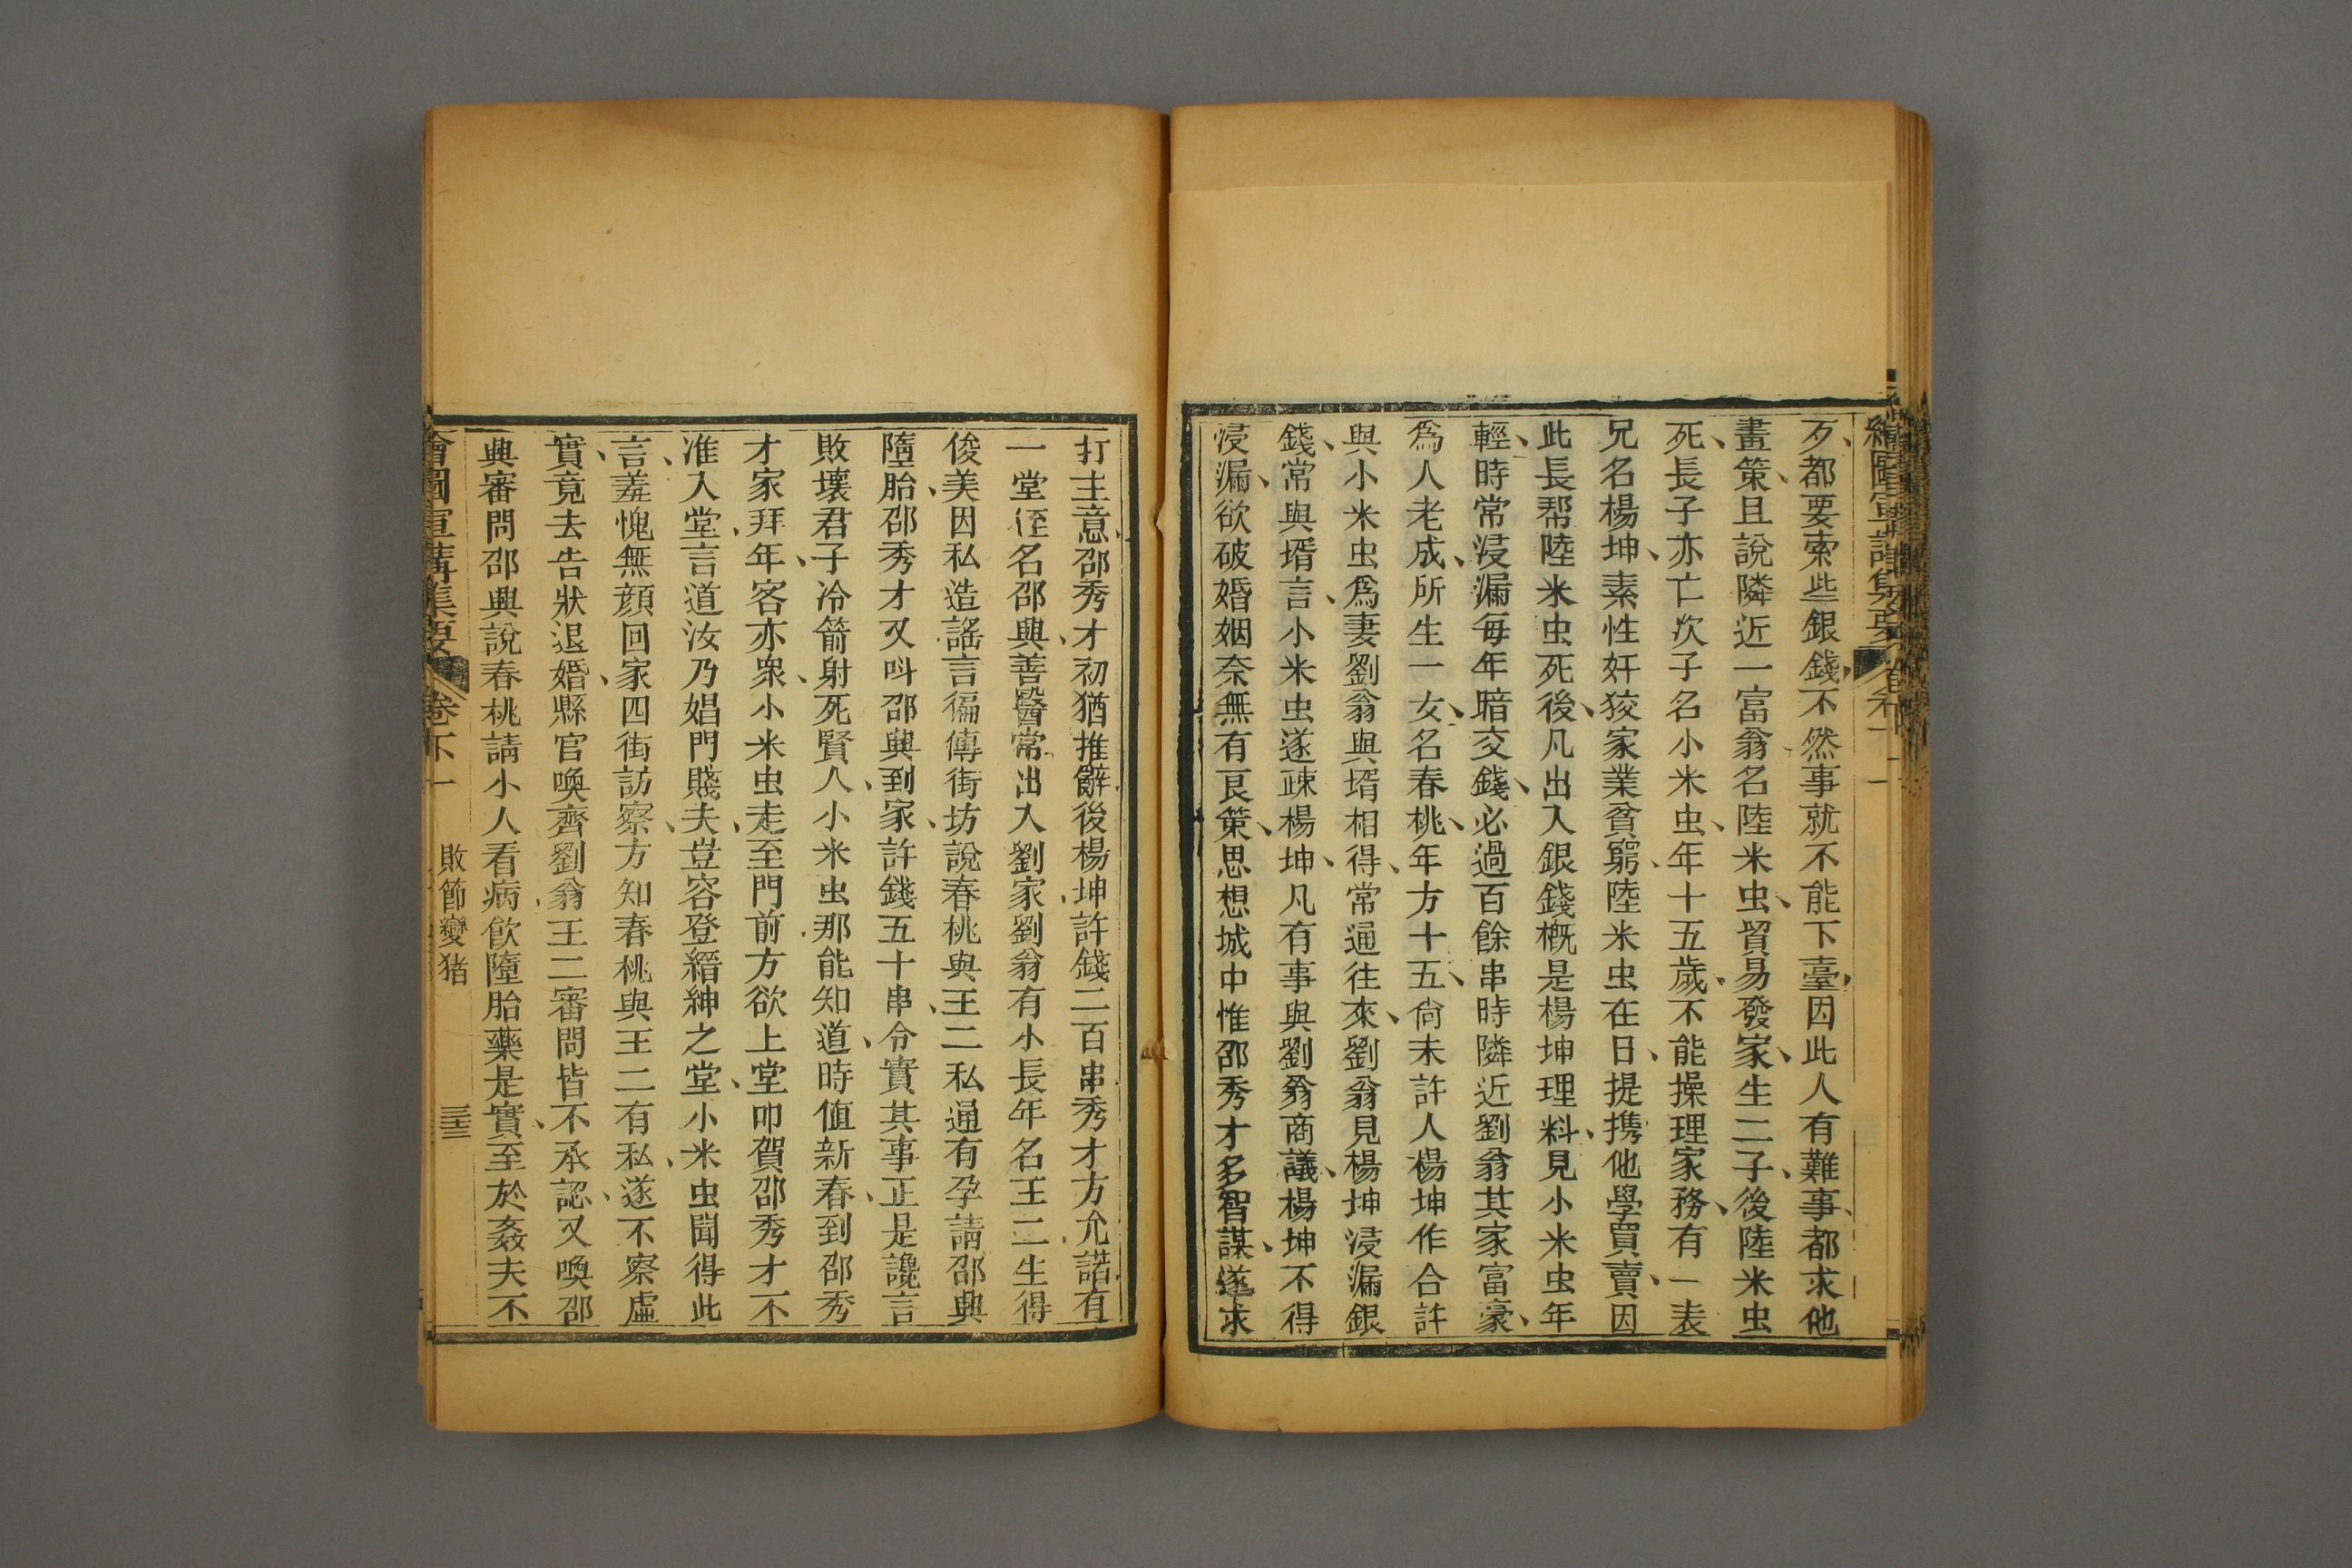 歹、都要索些銀錢、不然事就不能下臺、因此人有難事、都求他
畫策、且說隣近一富翁名陸米虫、貿易發家、生二子、後陸米虫
死、長子亦亡次子名小米虫、年十五歲、不能操理家務、有一表
兄名楊坤、素性奸狡家業貧窮、陸米虫在日、提携他學買賣、因
此長帮陸米虫死後、凡出入銀錢概是楊坤理料、見小米虫年
輕、時常浸漏每年暗交錢、必過百餘串時隣近劉翁其家富豪、
爲人老成、所生一女、名春桃、年方十五、尙未許人楊坤作合許
與小米虫爲妻劉翁與壻相得、常通往來、劉翁見楊坤浸漏銀
錢、常與壻言、小米虫遂疎楊坤、凡有事與劉翁商議、楊坤不得
浸漏、欲破婚姻奈無有良策、思想城中惟邵秀才多智謀、遂求
打主意、邵秀才初猶推辭、後楊坤許錢二百串秀才方允諾、有
一堂侄名邵興、善醫常出入劉家、劉翁有小長年名王二、生得
俊美因私造謠言徧傳街坊說春桃與王二私通有孕請邵興
墮胎、邵秀才又呌邵興到家、許錢五十串、令實其事正是讒言
敗壞君子冷箭射死賢人、小米虫那能知道、時値新春、到邵秀
才家拜年、客亦衆、小米虫走至門前方欲上堂叩賀邵秀才不
准入堂、言道汝乃娼門賤夫、豈容登縉紳之堂、小米虫聞得此
言、羞愧無顔回家四街訪察、方知春桃與王二有私、遂不察虛
實、竟去告狀退婚、縣官喚齊劉翁王二審問皆不承認、又喚邵
興審問邵興說春桃請小人看病、飮墮胎藥是實、至於姦夫不
敗節變猪
三十三